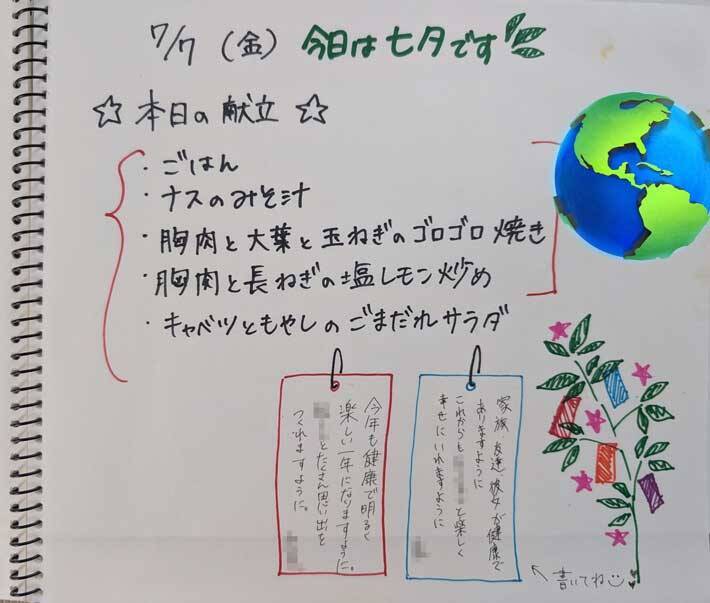 7/7 (金) 今日は七夕です
☆ 本日の献立 ☆
・ごはん
・ナスのみそ汁
・胸肉と大葉と玉ねぎのゴロゴロ焼き
・胸肉と長ねぎの塩レモン炒め
・キャベツともやしのごまだれサラダ
家族 友達 彼女が健康で
ありますように
これからも と楽しく
幸せにいれますように
今年も健康で明るく
楽しい一年になりますように。
とたくさん思い出を
つくれますように。
↖書いてね